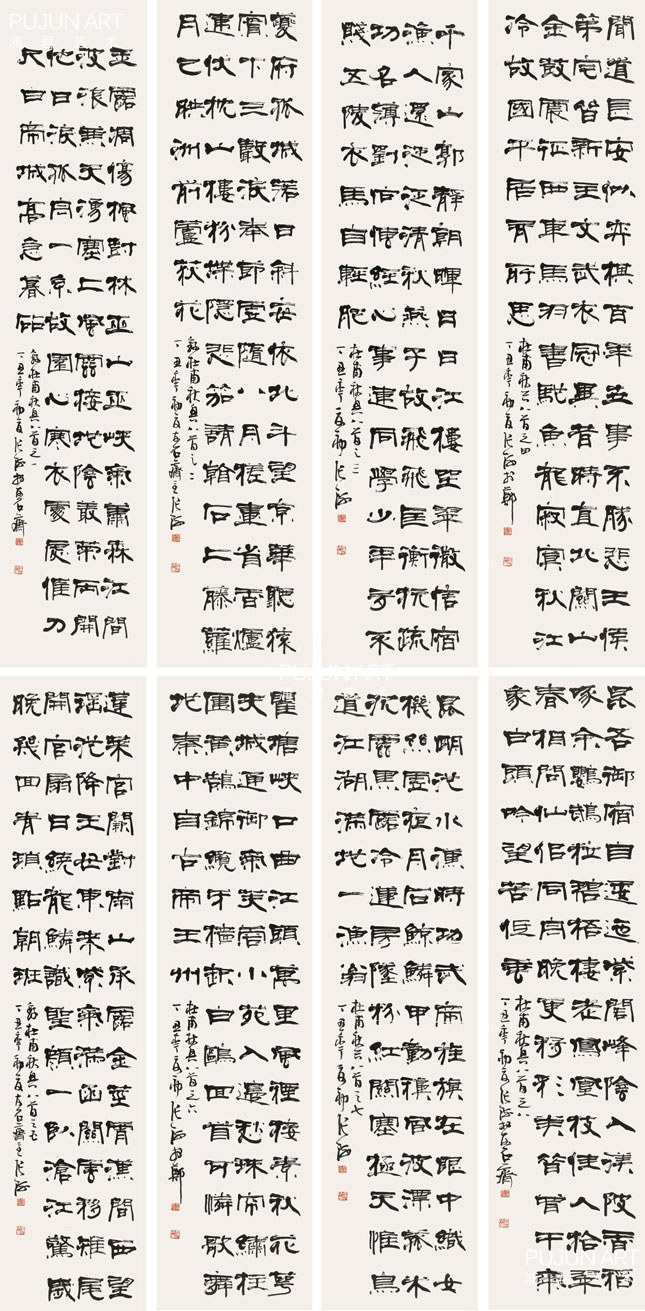 PUJUN ART
玉露凋傷楓對林巫山巫峽氣蕭森江間
波浪兼天湧塞上風雲接地陰叢菊兩開
他日淚孤舟一系故園心寒衣處處催刀
尺白帝城高急暮砧
錄杜甫秋興八首之一
丁丑年初夏
夔府孤城落日斜每依北斗望京華聽猿
實下三聲淚奉節虛隨八月槎畫省香爐
違伏枕山樓粉堞隱悲笳請看石上藤蘿
月已映洲前蘆荻花
錄杜甫秋興八首之二
丁丑年初夏於石齋主張海
千家山郭靜朝暉日日江樓坐翠微信宿
漁人還泛泛清秋燕子故飛飛匡衡抗疏
功名薄劉向傳經心事違同學少年多不
賤五陵衣馬自輕肥
杜甫秋興八首之三
丁丑年夏初張海
聞道長安似弈棋百年世事不勝悲王侯
第宅皆新主文武衣冠異昔時直北關山
金鼓震征西車馬羽書馳魚龍寂寞秋江
冷故國平居有所思
杜甫秋興八首之四
丁丑年初夏張海於鄭
蓬萊宮闕對南山承露金莖霄漢間西望
瑤池降王母東來紫氣滿函關雲移雉尾
開宮扇日繞龍鱗識聖顏一臥滄江驚歲
晚幾回青瑣點朝班
錄杜甫秋興八首之五
丁丑年初夏於石齋主張海
瞿塘峽口曲江頭萬里風煙接素秋花萼
夾城通御氣芙蓉小苑入邊愁珠簾繡柱
圍黃鵠錦纜牙檣起白鷗回首可憐歌舞
地秦中自古帝王州
杜甫秋興八首之六
丁丑年夏初張海於鄭
昆明池水漢時功武帝旌旗在眼中織女
機絲虛夜月石鯨鱗甲動秋風波漂菰米
沉雲黑露冷蓮房墜粉紅關塞極天惟鳥
道江湖滿地一漁翁
杜甫秋興八首之七
丁丑年夏初張海
昆吾御宿自逶迤紫閣峰陰入渼陂香稻
啄余鸚鵡粒碧梧棲老鳳凰枝佳人拾翠
春相問仙侶同舟晚更移彩筆昔曾干氣
象白頭吟望苦低垂
杜甫秋興八首之八
丁丑年初夏張海於石齋
PUJUN ART
PUJUN ART